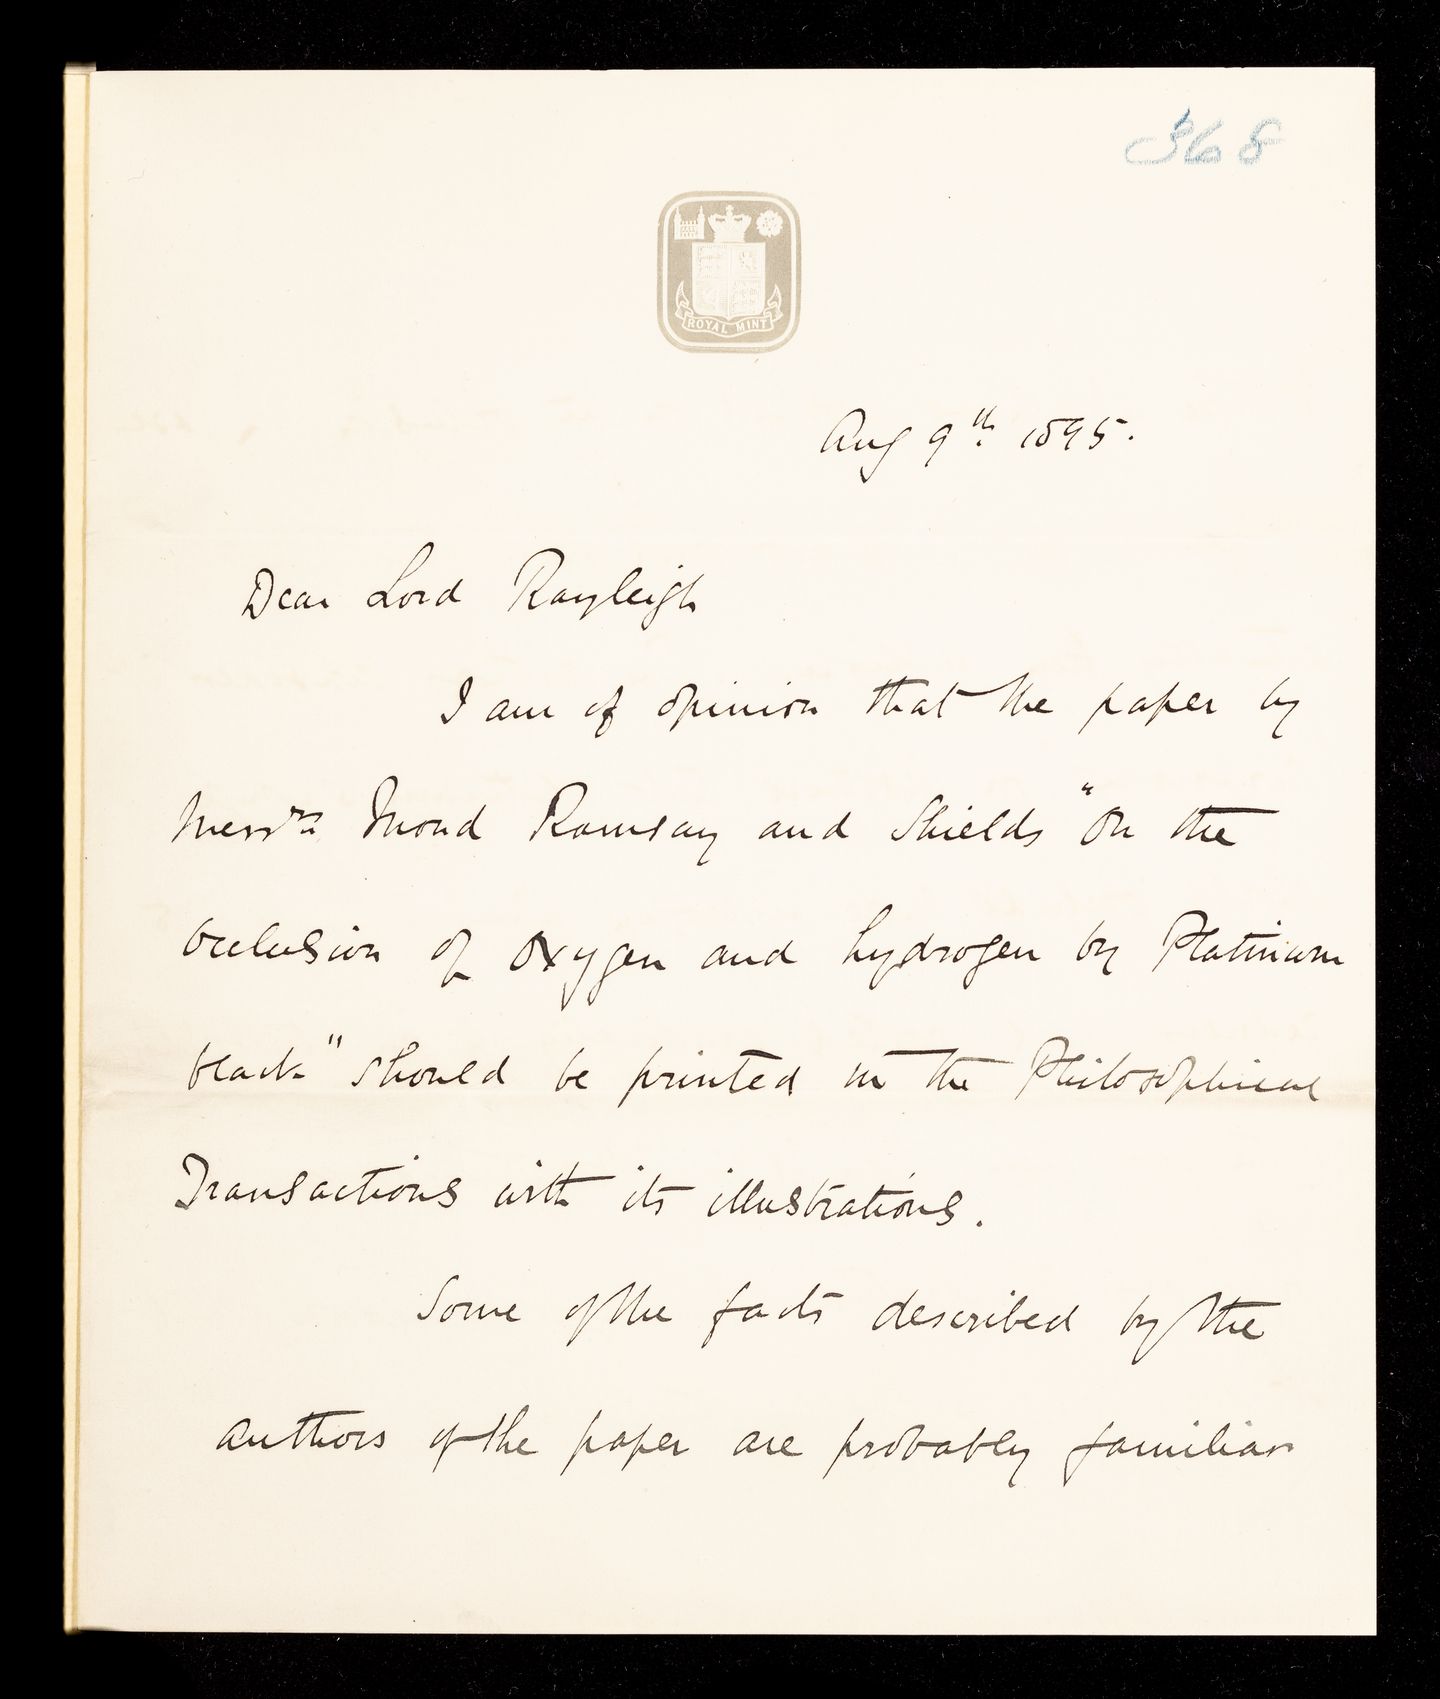 368
ROYAL MINT
Aug 9th 1895.
Dear Lord Rayleigh
I am of opinion that the paper by
Messrs Mond Ramsay and Shields "On the
Occlusion of Oxygen and hydrogen by Platinum
black" should be printed in the Philosophical
Transactions with its illustrations.
Some of the facts described by the
authors of the paper are probably familiar